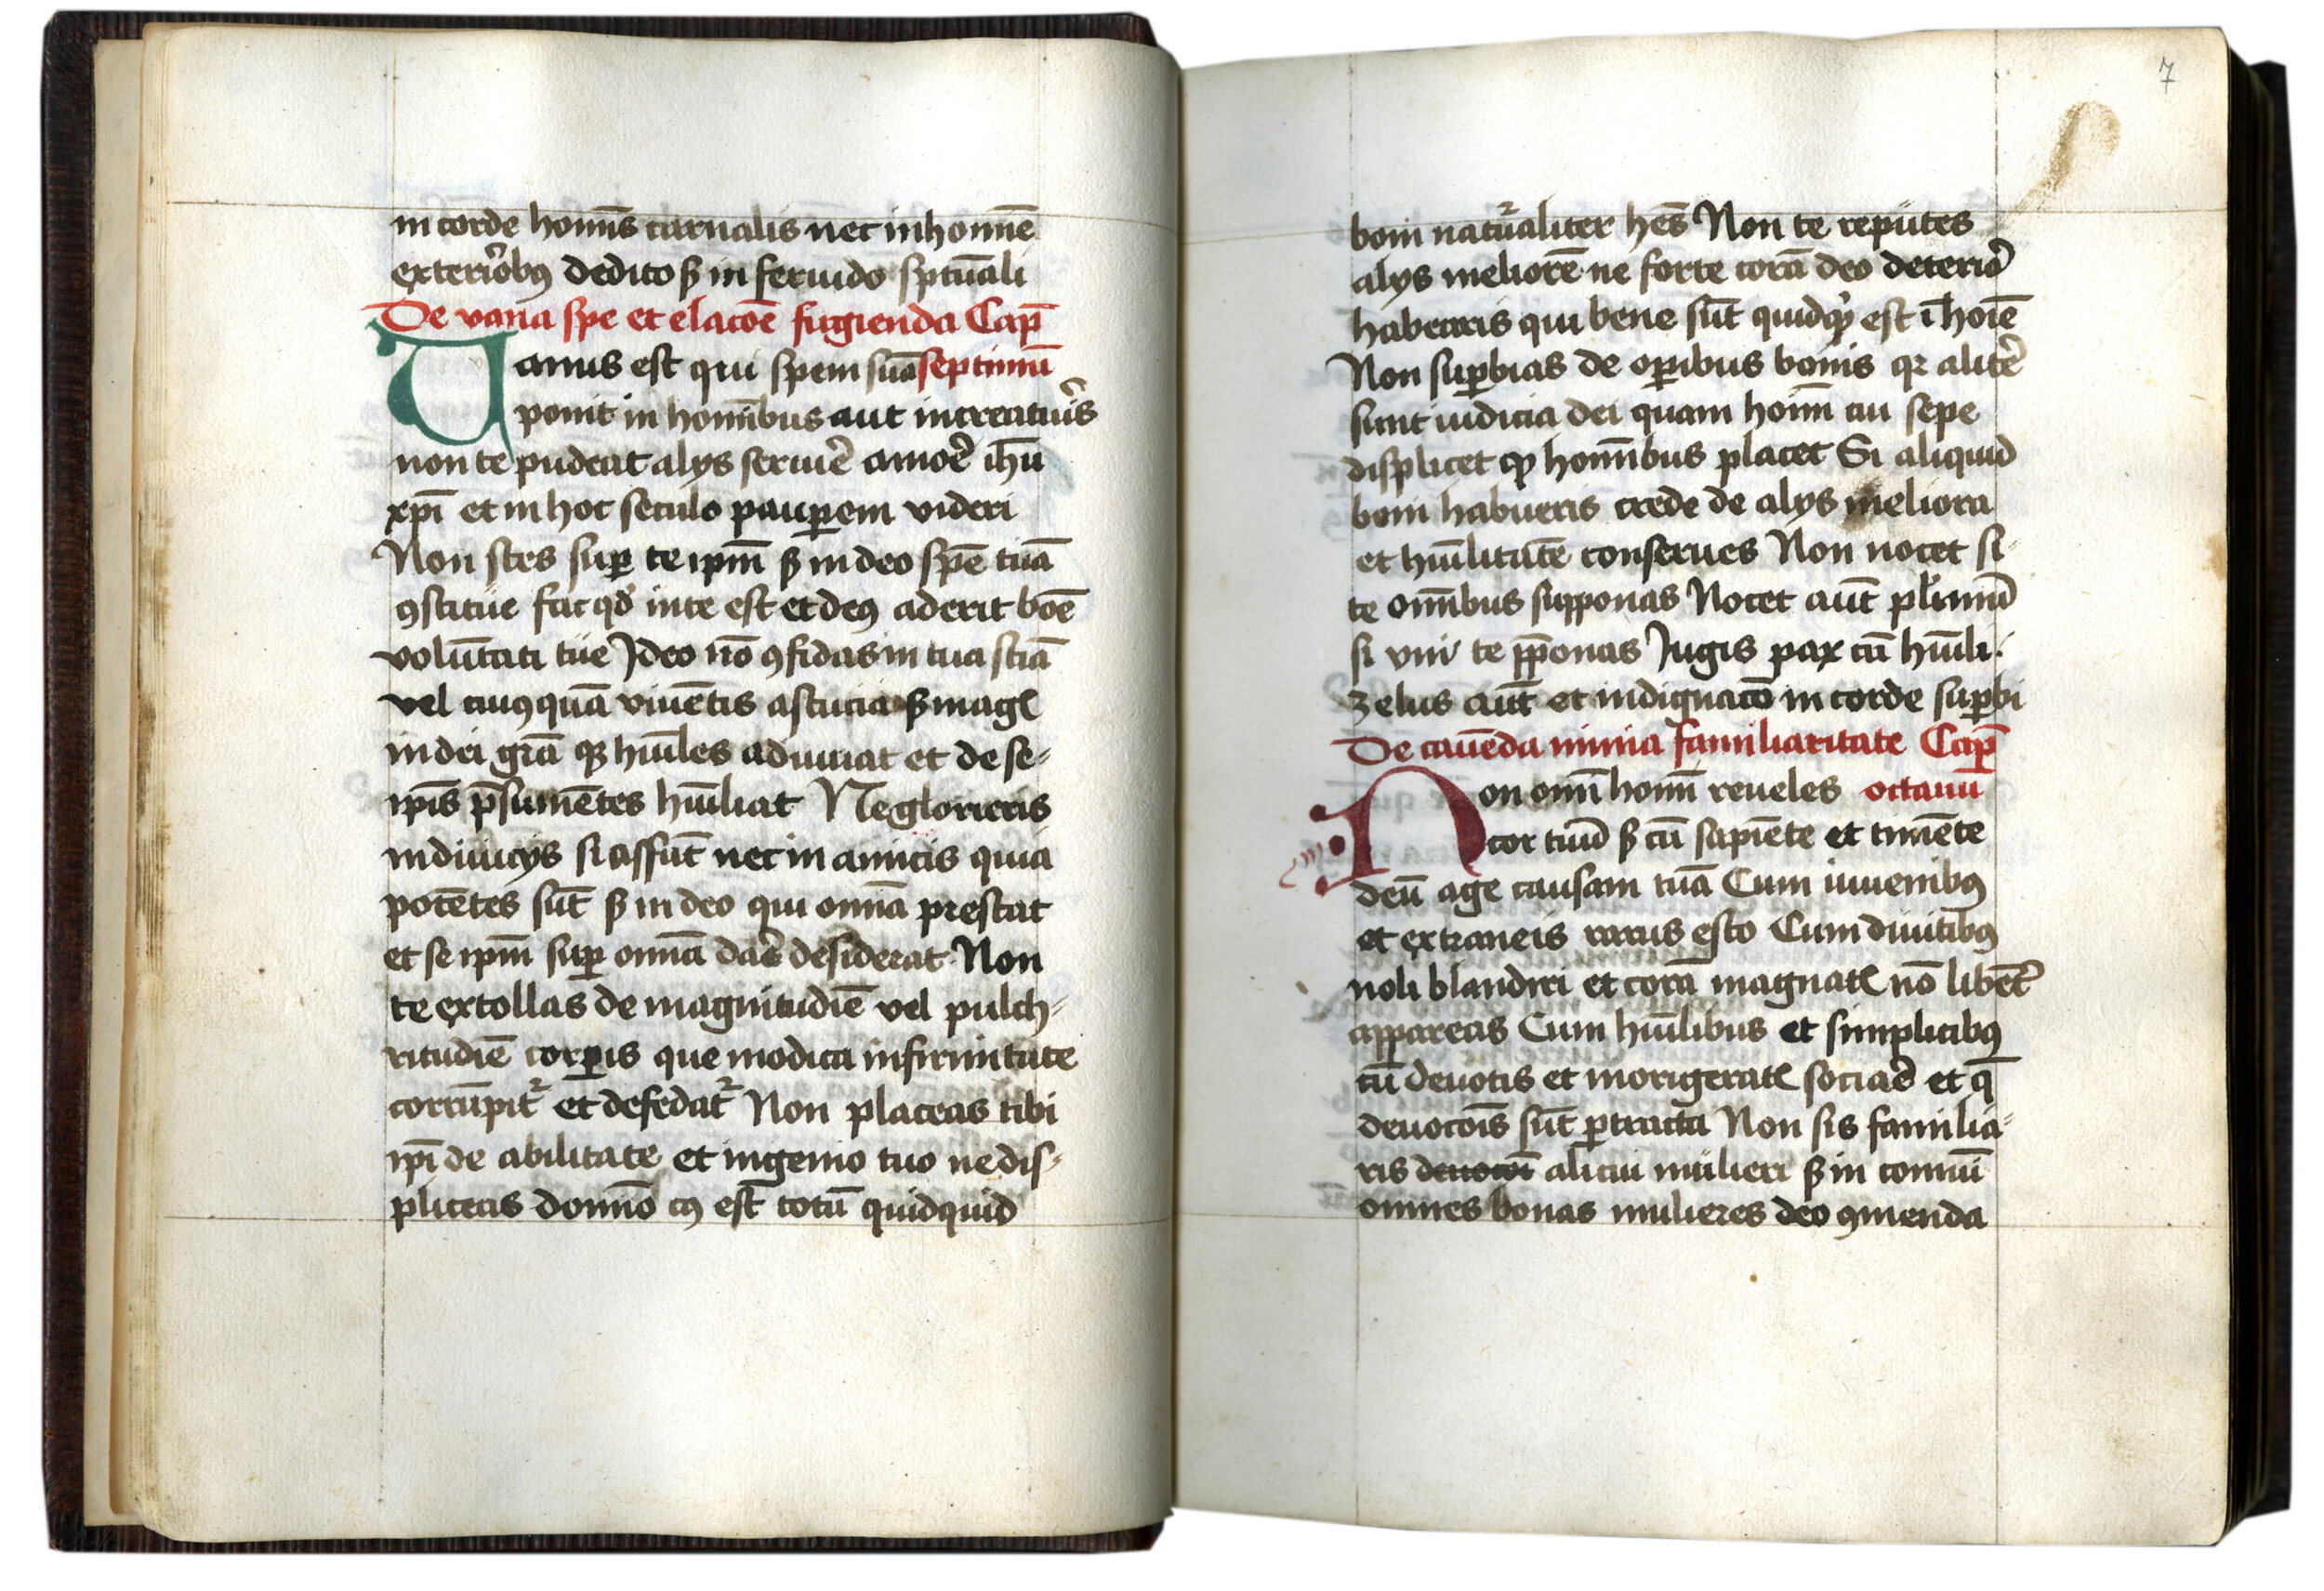 in corde homīs carnalis nec in homīe
exteriōbꝰ dedito sꝫ in feruido sp̄tuali
De vana spe et elacōe fugienda Cap̄
Uanus est qui spem suā septimū
ponit in homībus aut in creatur̄is
non te pudeat alijs seruir̄e amor̄e ih̄u
xp̄i et in hoc seculo pauꝑem videri
Non stes suꝑ te ip̄m sꝫ in deo spē tuā
ꝯstitue fac qd̄ in te est et deꝰ aderit boē
volūtati tue Ideo nō ꝯfidas in tua sciā
vel cuiꝰquā viuētis astucia sꝫ magꝭ
in dei grā qꝫ hūiles adiuuat et de se-
ip̄is p̄sumētes hūiliat Ne glorieris
in diuicijs si assūt nec in amicis quia
potētes sūt sꝫ in deo qui om̄ia prestat
et se ip̄m suꝑ om̄ia dar̄e desiderat Non
te extollas de magnitudīe vel pulch-
ritudīe corꝑis que modica infirmitate
corrūpit᷑ et defedat᷑ Non placeas tibi
ip̄i de abilitate et ingenio tuo ne dis-
pliceas domīo cꝰ est totū quidquid
7
boni natur᷑aliter hēs Non te reputes
alijs meliorē ne forte corā deo deterior̄
habearis qui bene sūt quidqꝫ est ī hoīe
Non suꝑbias de oꝑibus bonis qꝛ alitēr
sunt iudicia dei quam hoīm cui sepe
displicet qꝫ homībus placet Si aliquid
boni habueris crede de alijs meliora
et hūilitatē conserues Non nocet si
te om̄ibus supponas Nocet aūt pl̄imū
si vni te p̄ponas Jugis pax cū hūili
zelus aūt et indignacō in corde suꝑbi
De cauēda nimia familiaritate Cap̄
Non om̄i homī reueles octauū
cor tuū sꝫ cū sapiēte et timēte
deū age causam tuā Cum iuuenibꝰ
et extraneis rarus esto Cum diuitibꝰ
noli blandiri et corā magnatꝭ nō libētēr
appareas Cum hūilibus et simplicibꝰ
cū deuotis et morigeratꝭ sociar̄e et q̄
deuocōis sūt ꝑtracta Non sis familia-
ris deuocōi alicui mulieri sꝫ in comūi
omnes bonas mulieres deo ꝯmenda